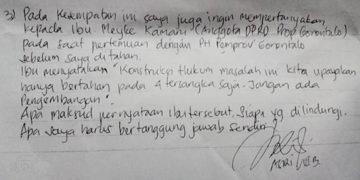 3) Pada kesempatan ini saya juga ingin mempertanyakan
kepada Ibu Meyke Kamaru (Anggota DPRD Prop Gorontalo)
pada saat pertemuan dengan PH Pemprov Gorontalo
sebelum saya ditahan.
Ibu menyatakan "Konstruksi Hukum masalah ini kita upayakan
hanya bertahan pada 4 tersangka saja. Jangan ada
Pengembangan".
Apa maksud pernyataan Ibu tersebut. Siapa yg dilindungi.
Apa saya harus bertanggung jawab sendiri?